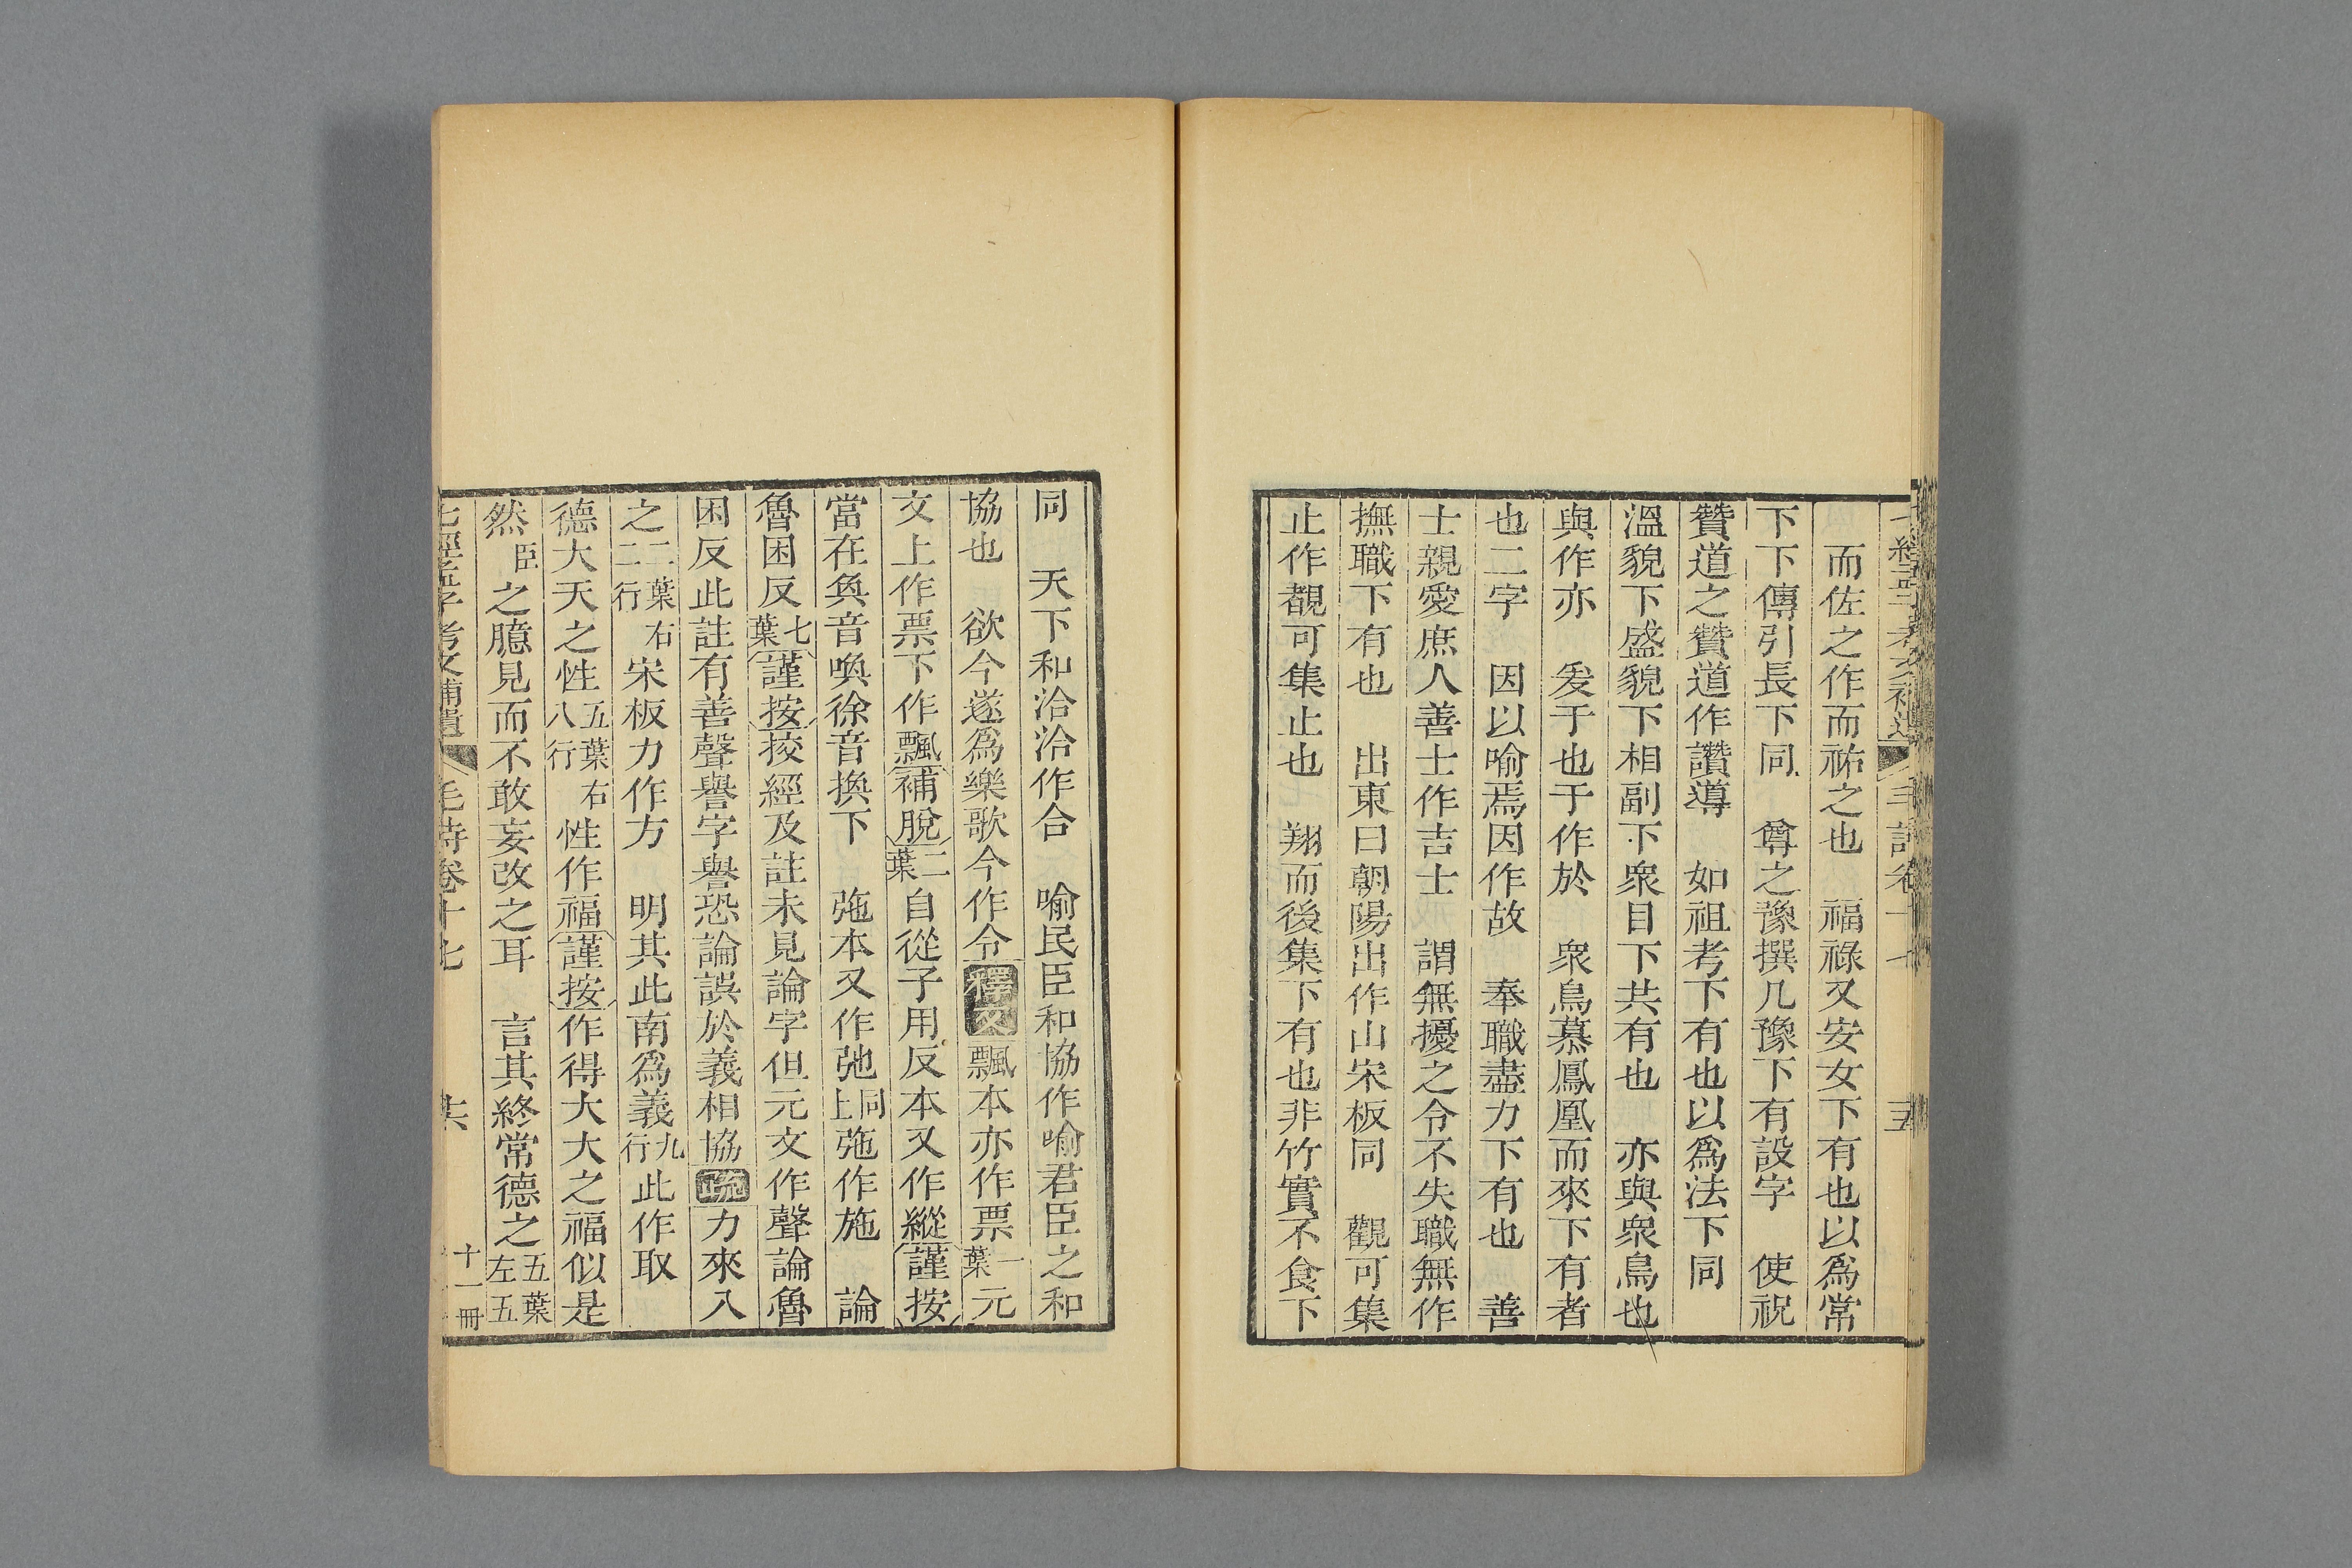 而佐之作而祐之也　福祿又安女下有也以爲常
下下傳引長下同　尊之豫撰几豫下有設字　使祝
贊道之贊道作讚導　如祖考下有也以爲法下同
溫貌下盛貌下相副下衆目下共有也　亦與衆鳥也
與作亦　爰于也于作於　衆鳥慕鳳凰而來下有者
也二字　因以喻焉因作故　奉職盡力下有也　善
士親愛庶人善士作吉士　謂無擾之令不失職無作
撫職下有也　出東曰朝陽出作山宋板同　觀可集
止作覩可集止也　翔而後集下有也非竹實不食下
同　天下和洽洽作合　喻民臣和協作喻君臣之和
協也　欲今遂爲樂歌今作令釋文飄本亦作票一葉元
文上作票下作飄補脫二葉自從子用反本又作縱謹按
當在奐音喚徐音換下　弛本又作弛同上弛作施　論
魯困反七葉謹按挍經及註未見論字但元文作聲論魯
困反此註有善聲譽字譽恐論誤於義相協疏力來入
之二葉右二行宋板力作方　明其此南爲義九行此作取
德大天之性五葉右八行性作福謹按作得大大之福似是
然臣之臆見而不敢妄改之耳　言其終常德之五葉左五
七經孟子考文補遺　毛詩卷十七　十六　十一冊